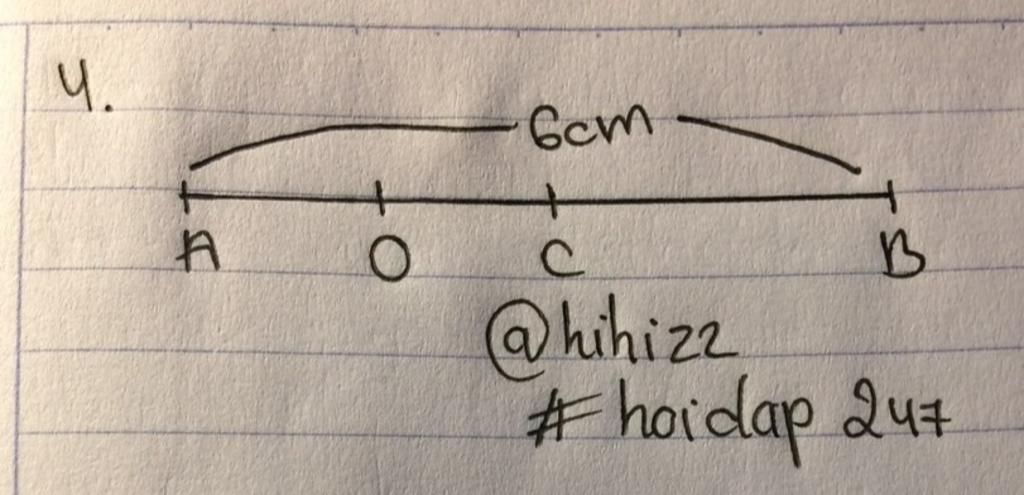 4.
6cm
A O C B
@hihizz
# hoidap 247